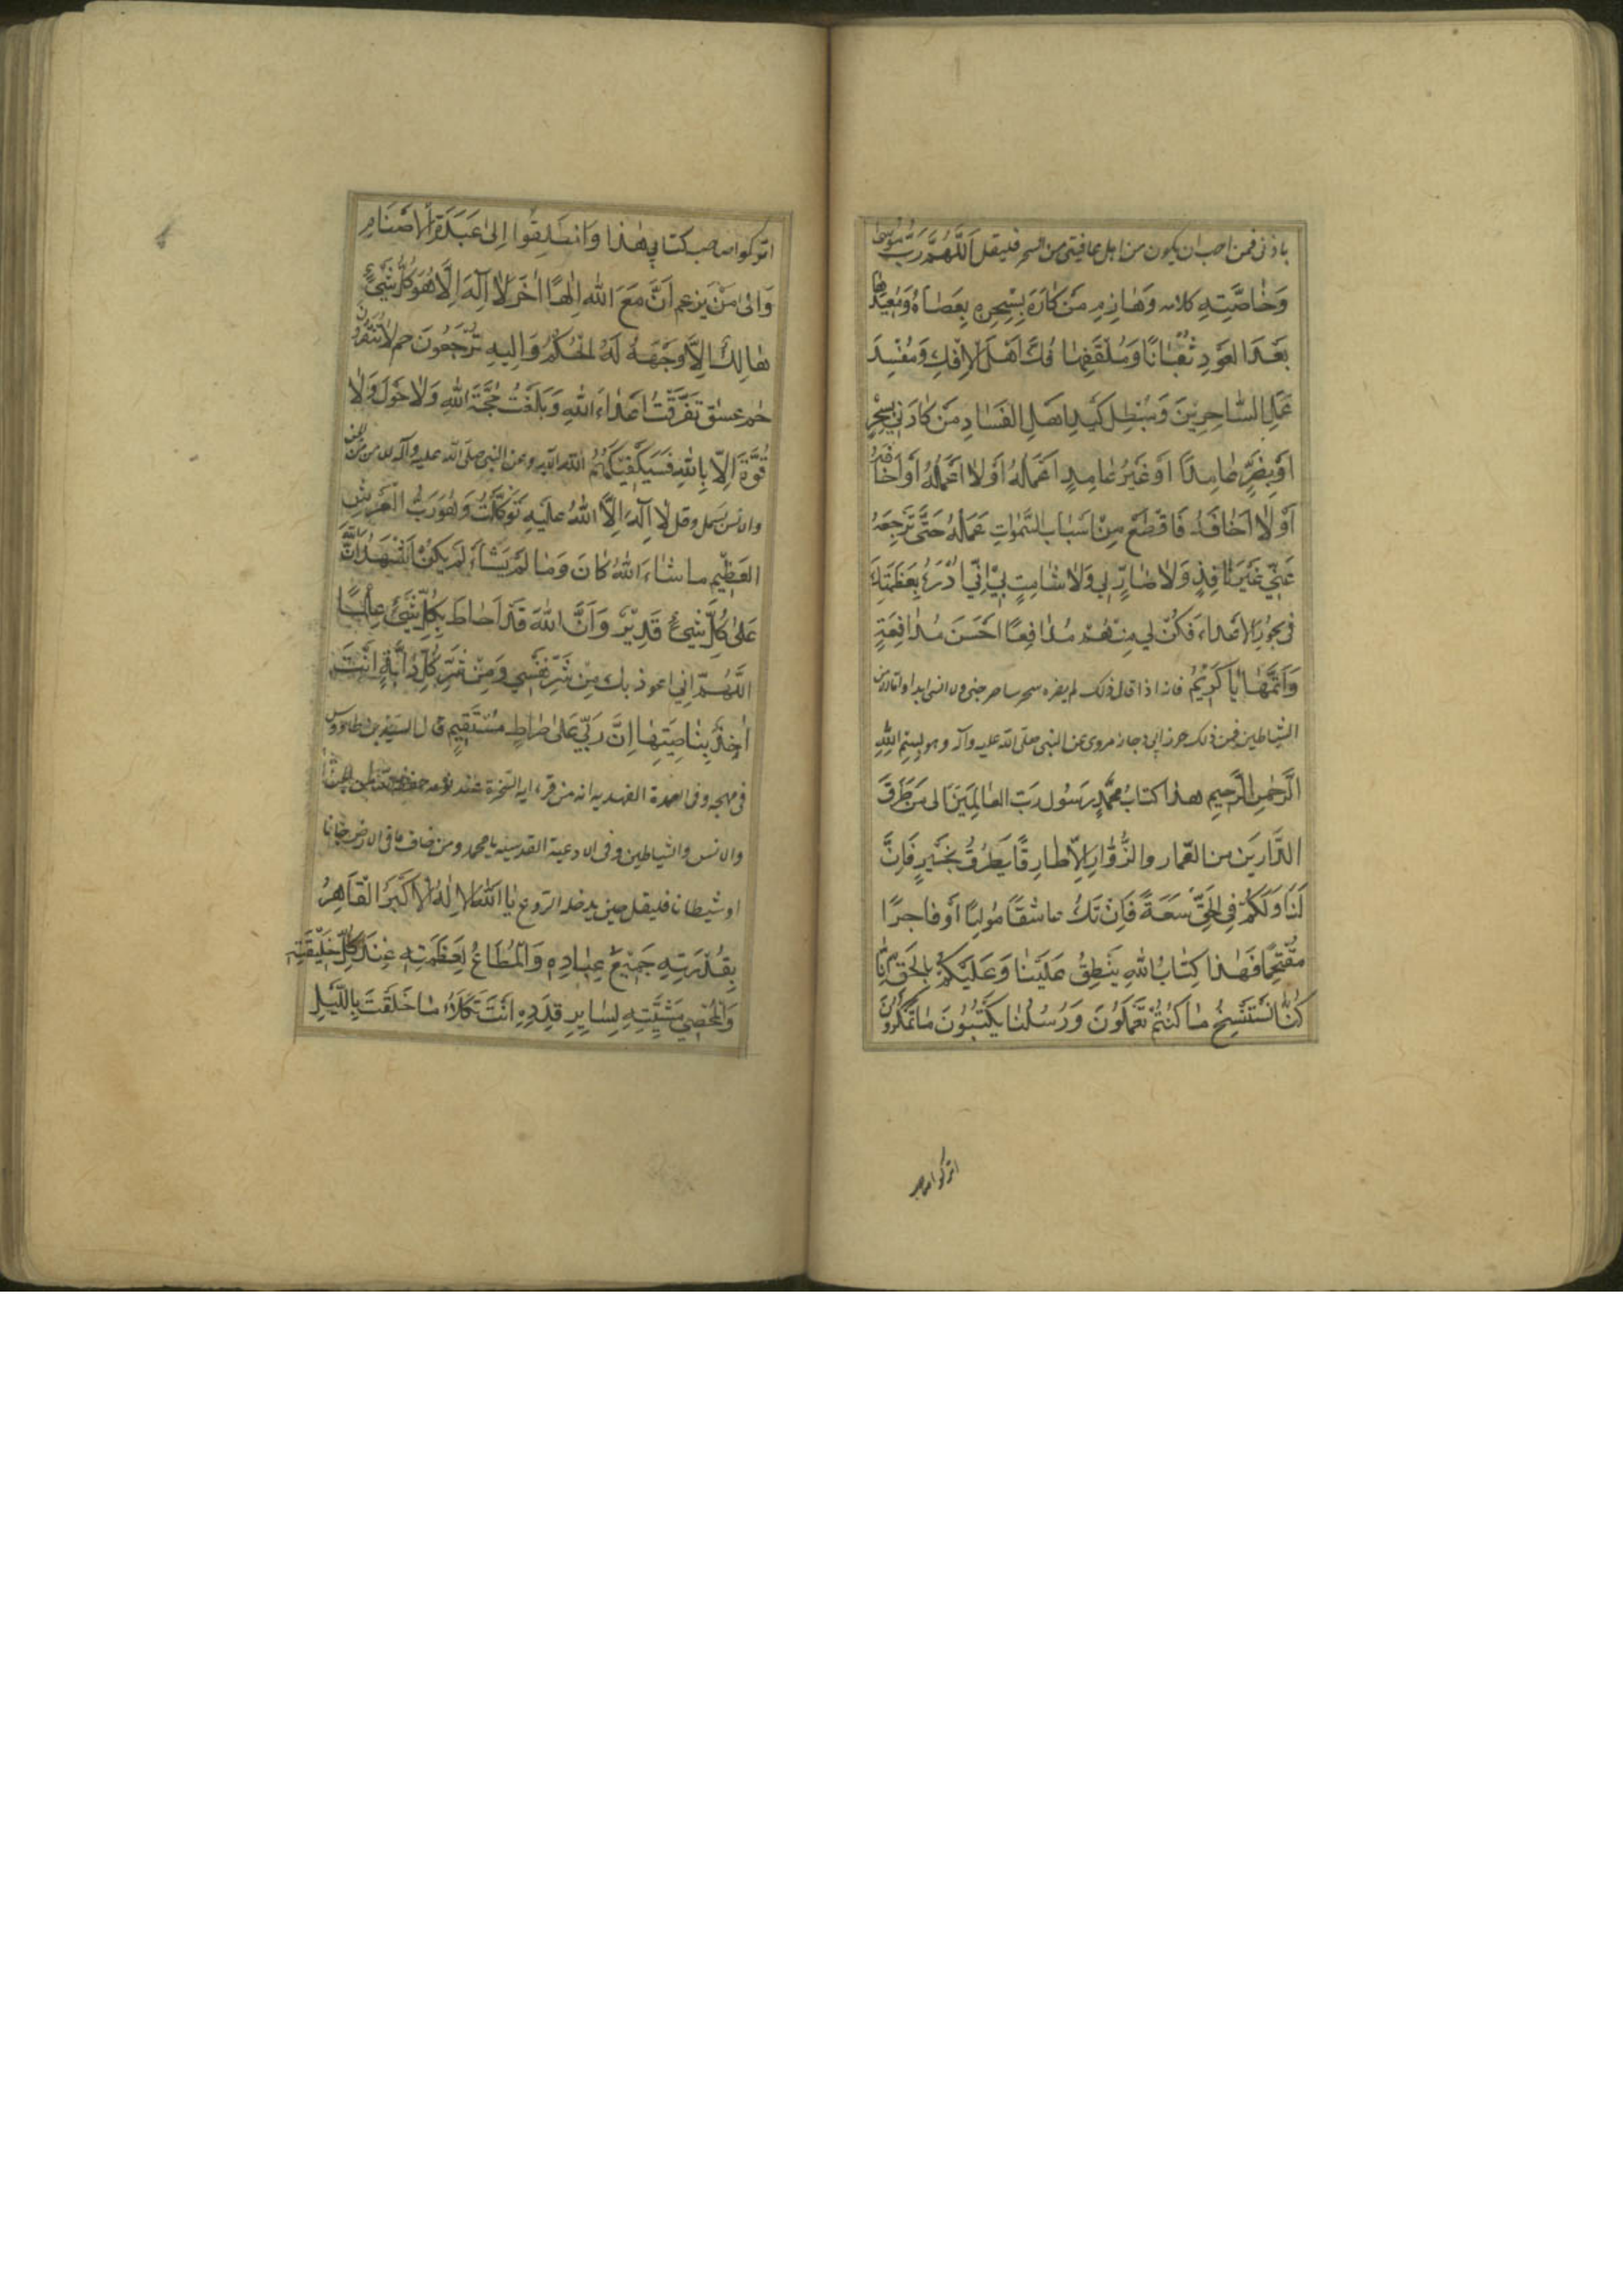 باذني فمن احب ان يكون من اهل عافيتي من السحر فليقل اَللّهُمَّ رَبَّ مُوسٰى
وَخٰاصَّتِهِ كلامه وَهٰازِمِ مَنْ كٰادَهُ بِسِحْرِهِ بِعَصٰاهُ وَمُعِيدَهٰا
بَعْدَ العَوْدِ ثُعْبٰانًا وَمُلَقِّفِهٰا اِفْكَ اَهْلِ الاِفْكِ وَمُفْسِدَ
عَمَلِ السّٰاحِرِيْنَ وَمُبْطِلَ كَيْدِ اهْلِ الفَسٰادِ مَنْ كٰادَنِي بِسِحْرٍ
اَوْ بِضُرٍّ عٰامِدًا اَوْ غَيْرَ عٰامِدٍ اَعْلَمُهُ اَوْ لاٰ اَعْلَمُهُ اَوْ اَخٰافُهُ
اَوْ لاٰ اَخٰافُهُ فَاقْطَعْ مِنْ اَسْبٰابِ السَّمٰوٰاتِ عَمَلَهُ حَتّٰى تَرْجِعَهُ
عَنّي غَيْرَ نٰافِذٍ وَلاٰ ضٰارٍّ لي وَلاٰ شٰامِتٍ بي اِنّي اَدْرَءُ بِعَظَمَتِكَ
في نحُورِ الاَعْداءِ فَكُنْ لي مِنْهُمْ مُدٰافِعًا اَحْسَنَ مُدٰافَعَةٍ
وَاَتَمَّهٰا يٰا كَرِيْمُ فانه اذا قال ذلك لم يضره سحر ساحر جني ولا انسي ابدا
الشياطين فمن ذلك حرز ابي دجانة مروى عن النبي صلى الله عليه وآله وهو بِسْمِ اللهِ
الرَّحْمٰنِ الرَّحِيمِ هذا كتابُ مُحَمَّدٍ رَسُول رَبّ العٰالَمِيْنَ الى مَنْ طَرَقَ
الدّٰارَيْن من العُمّار والزُّوّارِ اِلاّ طٰارِقًا يَطْرُقُ بِخَيْرٍ فَاِنَّ
لَنٰا وَلَكُمْ فِي الحَقِّ سَعَةً فَاِنْ تَكُ عاشقًا مُولِعًا اَوْ فٰاجِرًا
مُقْتَحِمًا فَهٰذا كِتٰابُ اللهِ يَنْطِقُ عَلَيْنٰا وَعَلَيْكُمْ بِالْحَقّ اِنّٰا
كُنّٰا نَسْتَنْسِخُ مٰا كُنْتُمْ تَعْمَلُوْنَ وَرُسُلُنٰا يَكْتُبُونَ مٰا تَمْكُرُونَ
اتركوا صاحب
اتركوا صاحب كتابي هٰذا وَانْطَلِقُوا اِلىٰ عَبَدَةِ الاَصْنٰامِ
وَالىٰ مَنْ يَزعم اَنَّ مَعَ اللهِ اِلٰهًا اٰخَرَ لاٰ اِلٰهَ اِلاّٰ هُوَ كُلُّ شَيْءٍ
هٰالِكٌ اِلاّٰ وَجْهَهُ لَهُ الحُكْمُ وَاِلَيْهِ تُرْجَعُونَ حم لاٰ تُنْصَرُونَ
حٰم عسق تَفَرَّقَتْ اَعْدٰاءُ اللهِ وَبَلَغَتْ حُجَّةُ اللهِ وَلاٰ حَوْلَ وَلاٰ
قُوَّةَ اِلاّ بِاللهِ فَسَيَكْفِيْكَهُمُ اللهُ الآية وعن النبي صلى الله عليه وآله للامن من الجن
والانس بسمل وقل لاٰ اِلٰهَ اِلاّٰ اللهُ عَلَيْهِ تَوَكَّلْتُ وَهُوَ رَبُّ العَرْشِ
العَظِيمِ ما شٰاءَ اللهُ كٰانَ وَمٰا لَمْ يَشٰأْ لَمْ يَكُنْ اَشْهَدُ اَنَّ اللهَ
عَلىٰ كُلِّ شَيْءٍ قَدِيْرٌ وَاَنَّ اللهَ قَدْ اَحٰاطَ بِكُلِّ شَيْءٍ عِلْمًا
اَللّهُمَّ اِنّي اعوذ بِكَ مِنْ شَرِّ نَفْسي وَمِنْ شَرِّ كُلِّ دٰابَّةٍ اَنْتَ
اٰخِذٌ بِنٰاصِيَتِهٰا اِنَّ رَبّي عَلىٰ صِرٰاطٍ مُسْتَقِيمٍ قال السيد بن طاووس
في مهجه وفي العمدة الفهدية انه من قرء اية السخرة عند نومه حفظ من الجن
والانس والشياطين وفي الادعية القدسية يا محمد ومن خاف ما في الارض جانا
او شيطانا فليقل حين يدخله الروع يٰا اَللهُ الاِلٰهُ الاَكْبَرُ القٰاهِرُ
بِقُدْرَتِهِ جَمِيْعَ عِبٰادِهِ وَالْمُطٰاعُ لِعَظَمَتِهِ عِنْدَ كُلِّ خَلِيقَتِهِ
وَالْمُمْضِي مَشِيَّتَهُ لِسٰابِقِ قَدَرِهِ اَنْتَ تَكْلَأُ مٰا خَلَقْتَ بِاللَّيْلِ